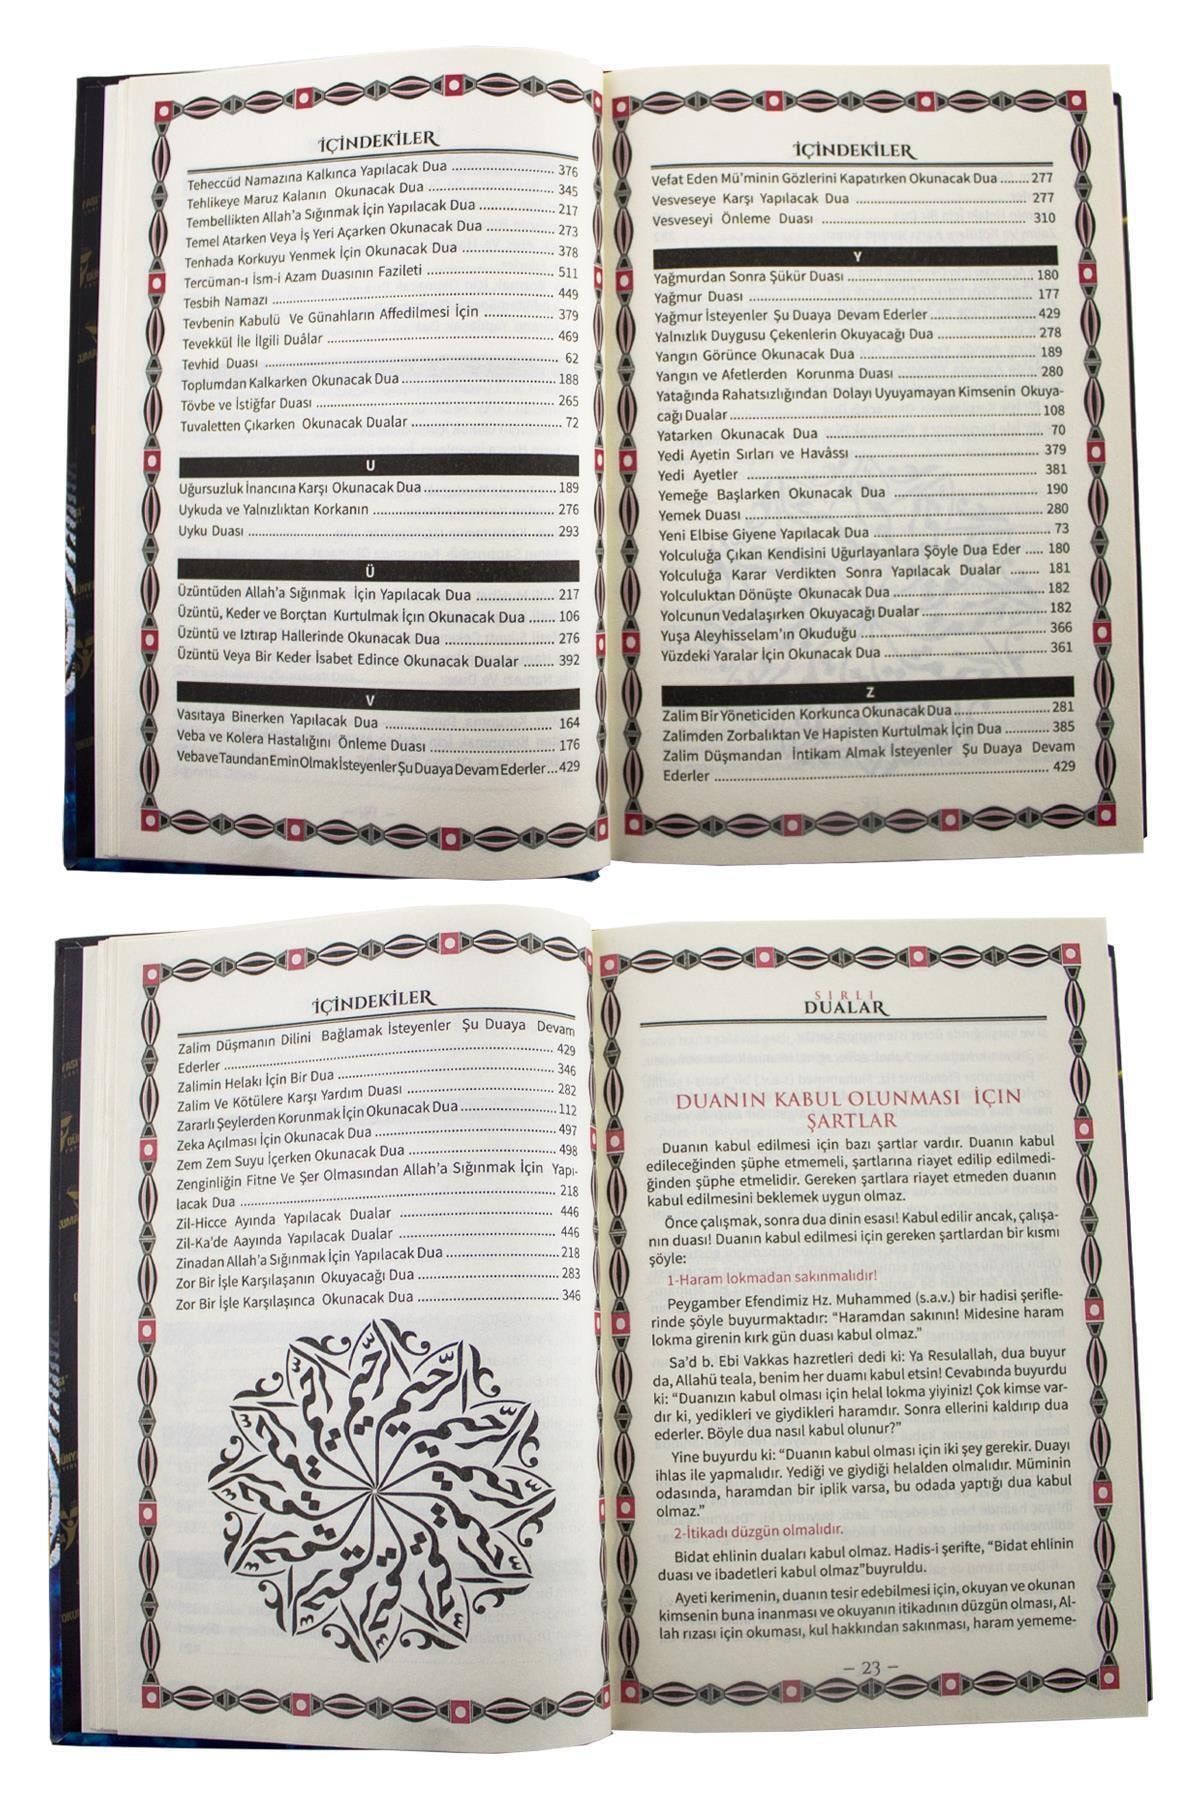 İÇİNDEKİLER
Teheccüd Namazına Kalkınca Yapılacak Dua ........ 376
Tehlikeye Maruz Kalanın Okunacak Dua ........ 345
Tembellikten Allah'a Sığınmak İçin Yapılacak Dua ........ 217
Temel Atarken Veya İş Yeri Açarken Okunacak Dua ........ 273
Tenhada Korkuyu Yenmek İçin Okunacak Dua ........ 378
Tercüman-ı İsm-i Azam Duasının Fazileti ........ 511
Tesbih Namazı ........ 449
Tevbenin Kabulü Ve Günahların Affedilmesi İçin ........ 379
Tevekkül İle İlgili Duâlar ........ 469
Tevhid Duası ........ 62
Toplumdan Kalkarken Okunacak Dua ........ 188
Tövbe ve İstiğfar Duası ........ 265
Tuvaletten Çıkarken Okunacak Dualar ........ 72
U
Uğursuzluk İnancına Karşı Okunacak Dua ........ 189
Uykuda ve Yalnızlıktan Korkanın ........ 276
Uyku Duası ........ 293
Ü
Üzüntüden Allah'a Sığınmak İçin Yapılacak Dua ........ 217
Üzüntü, Keder ve Borçtan Kurtulmak İçın Okunacak Dua ...... 106
Üzüntü ve Iztırap Hallerinde Okunacak Dua ........ 276
Üzüntü Veya Bir Keder İsabet Edince Okunacak Dualar ........ 392
V
Vasıtaya Binerken Yapılacak Dua ........ 164
Veba ve Kolera Hastalığını Önleme Duası ........ 176
Veba ve Taundan Emin Olmak İsteyenler Şu Duaya Devam Ederler...429
İÇİNDEKİLER
Vefat Eden Mü'minin Gözlerini Kapatırken Okunacak Dua ........ 277
Vesveseye Karşı Yapılacak Dua ........ 277
Vesveseyi Önleme Duası ........ 310
Y
Yağmurdan Sonra Şükür Duası ........ 180
Yağmur Duası ........ 177
Yağmur İsteyenler Şu Duaya Devam Ederler ........ 429
Yalnızlık Duygusu Çekenlerin Okuyacağı Dua ........ 278
Yangın Görünce Okunacak Dua ........ 189
Yangın ve Afetlerden Korunma Duası ........ 280
Yatağında Rahatsızlığından Dolayı Uyuyamayan Kimsenin Okuya-
cağı Dualar ........ 108
Yatarken Okunacak Dua ........ 70
Yedi Ayetin Sırları ve Havâssı ........ 379
Yedi Ayetler ........ 381
Yemeğe Başlarken Okunacak Dua ........ 190
Yemek Duası ........ 280
Yeni Elbise Giyene Yapılacak Dua ........ 73
Yolculuğa Çıkan Kendisini Uğurlayanlara Şöyle Dua Eder ..... 180
Yolculuğa Karar Verdikten Sonra Yapılacak Dualar ........ 181
Yolculuktan Dönüşte Okunacak Dua ........ 182
Yolcunun Vedalaşırken Okuyacağı Dualar ........ 182
Yuşa Aleyhisselam'ın Okuduğu ........ 366
Yüzdeki Yaralar İçin Okunacak Dua ........ 361
Z
Zalim Bir Yöneticiden Korkunca Okunacak Dua ........ 281
Zalimden Zorbalıktan Ve Hapisten Kurtulmak İçin Dua ........ 385
Zalim Düşmandan İntikam Almak İsteyenler Şu Duaya Devam
Ederler ........ 429
İÇİNDEKİLER
Zalim Düşmanın Dilini Bağlamak İsteyenler Şu Duaya Devam
Ederler ........ 429
Zalimin Helakı İçin Bir Dua ........ 346
Zalim Ve Kötülere Karşı Yardım Duası ........ 282
Zararlı Şeylerden Korunmak İçin Okunacak Dua ........ 112
Zeka Açılması İçin Okunacak Dua ........ 497
Zem Zem Suyu İçerken Okunacak Dua ........ 498
Zenginliğin Fitne Ve Şer Olmasından Allah'a Sığınmak İçin Yapı-
lacak Dua ........ 218
Zil-Hicce Ayında Yapılacak Dualar ........ 446
Zil-Ka'de Aayında Yapılacak Dualar ........ 446
Zinadan Allah'a Sığınmak İçin Yapılacak Dua ........ 218
Zor Bir İşle Karşılaşanın Okuyacağı Dua ........ 283
Zor Bir İşle Karşılaşınca Okunacak Dua ........ 346
SIRLI
DUALAR
DUANIN KABUL OLUNMASI İÇİN
ŞARTLAR
Duanın kabul edilmesi için bazı şartlar vardır. Duanın kabul
edileceğinden şüphe etmemeli, şartlarına riayet edilip edilmedi-
ğinden şüphe etmelidir. Gereken şartlara riayet etmeden duanın
kabul edilmesini beklemek uygun olmaz.
Önce çalışmak, sonra dua dinin esası! Kabul edilir ancak, çalışa-
nın duası! Duanın kabul edilmesi için gereken şartlardan bir kısmı
şöyle:
1-Haram lokmadan sakınmalıdır!
Peygamber Efendimiz Hz. Muhammed (s.a.v.) bir hadisi şerifle-
rinde şöyle buyurmaktadır: “Haramdan sakının! Midesine haram
lokma girenin kırk gün duası kabul olmaz.”
Sa’d b. Ebi Vakkas hazretleri dedi ki: Ya Resulallah, dua buyur
da, Allahü teala, benim her duamı kabul etsin! Cevabında buyurdu
ki: “Duanızın kabul olması için helal lokma yiyiniz! Çok kimse var-
dır ki, yedikleri ve giydikleri haramdır. Sonra ellerini kaldırıp dua
ederler. Böyle dua nasıl kabul olunur?”
Yine buyurdu ki: “Duanın kabul olması için iki şey gerekir. Duayı
ihlas ile yapmalıdır. Yediği ve giydiği helalden olmalıdır. Müminin
odasında, haramdan bir iplik varsa, bu odada yaptığı dua kabul
olmaz.”
2-İtikadı düzgün olmalıdır.
Bidat ehlinin duaları kabul olmaz. Hadis-i şerifte, “Bidat ehlinin
duası ve ibadetleri kabul olmaz”buyruldu.
Ayeti kerimenin, duanın tesir edebilmesi için, okuyan ve okunan
kimsenin buna inanması ve okuyanın itikadının düzgün olması, Al-
lah rızası için okuması, kul hakkından sakınması, haram yememe-
– 23 –